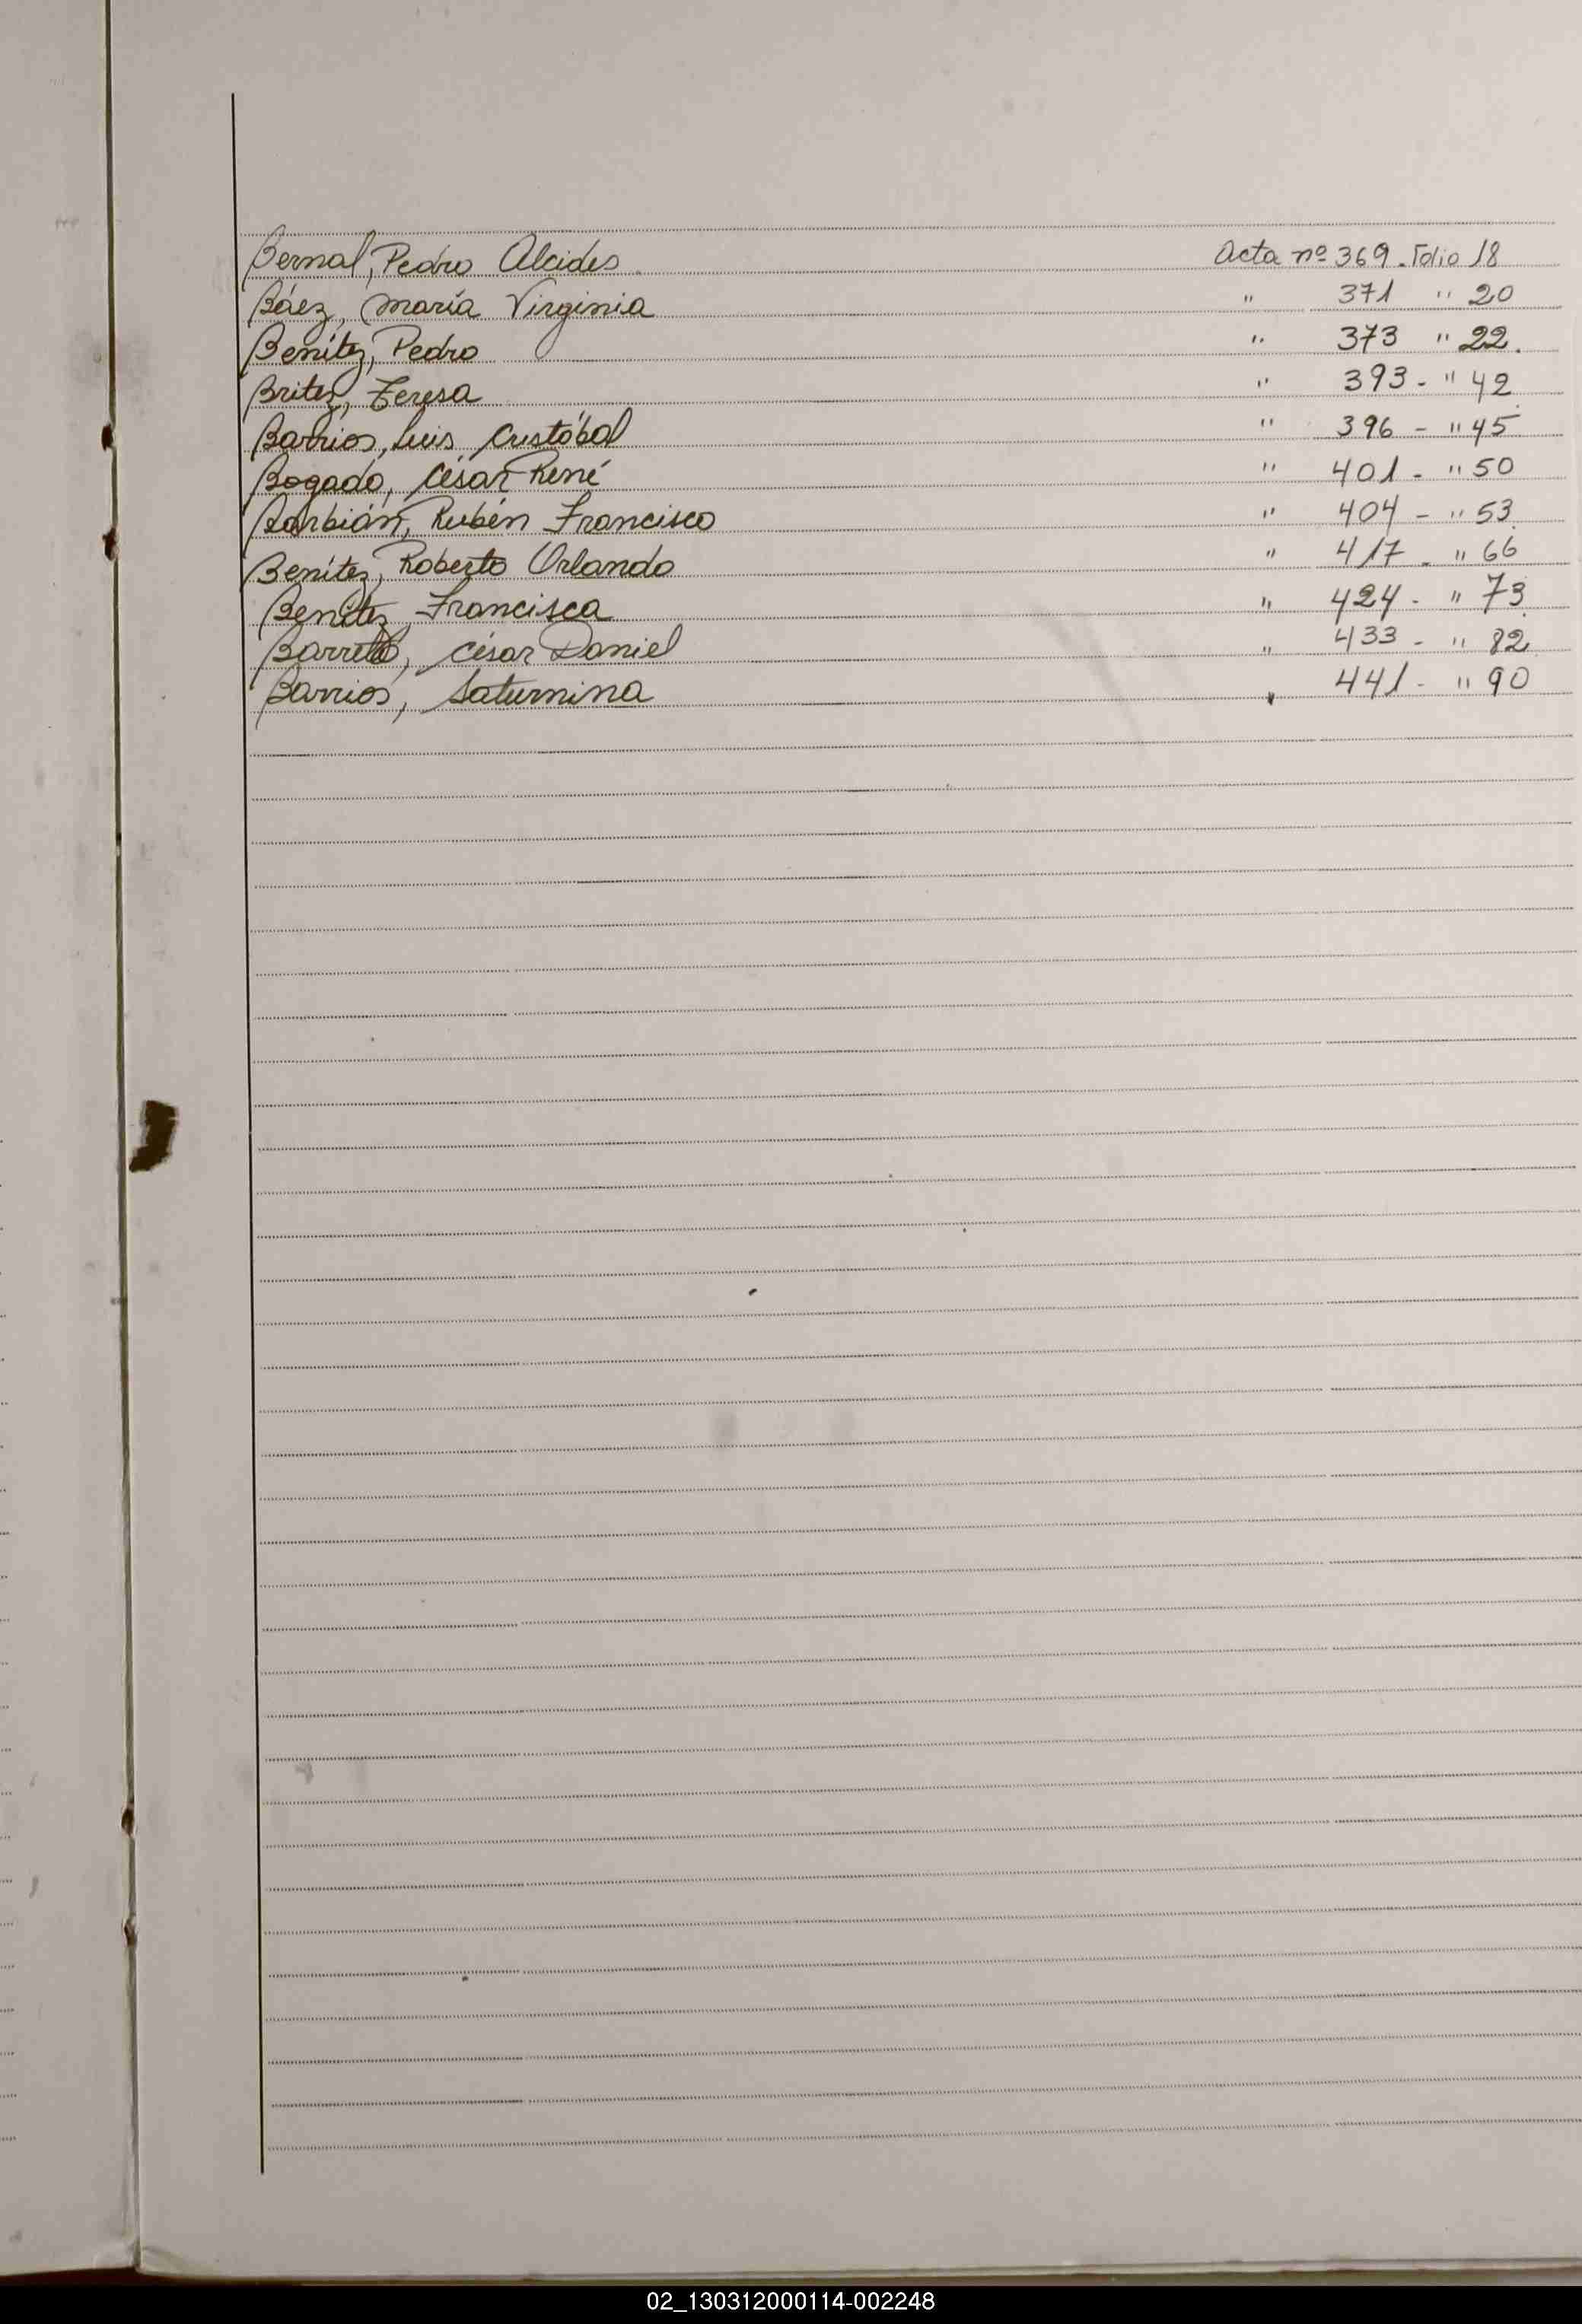 Bernal, Pedro Alcides Acta nº 369 - Folio 18
Báez, María Virginia " 371 " 20
Benítez, Pedro " 373 " 22.
Britez, Teresa " 393 - " 42
Barrios, Luis Cristóbal " 396 - " 45
Bogado, César René " 401 - " 50
Barbián, Rubén Francisco " 404 - " 53
Benítez, Roberto Orlando " 417 - " 66
Benítez, Francisca " 424 - " 73
Barreto, César Daniel " 433 - " 82
Barrios, Saturnina " 441 - " 90
02_130312000114-002248